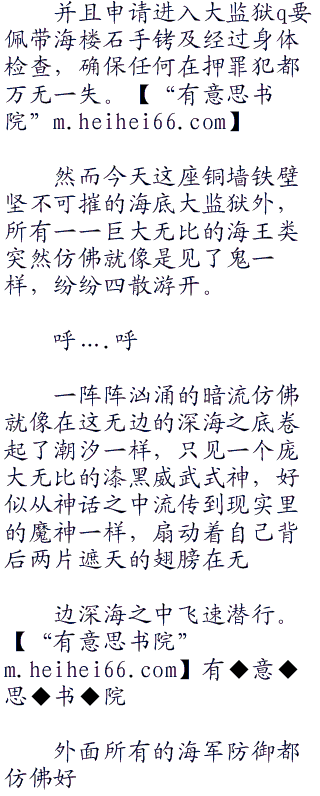 并且申请进入大监狱q要
佩带海楼石手铐及经过身体
检查，确保任何在押罪犯都
万无一失。【“有意思书
院”m.heihei66.com】
然而今天这座铜墙铁壁
坚不可摧的海底大监狱外，
所有一一巨大无比的海王类
突然仿佛就像是见了鬼一
样，纷纷四散游开。
呼….呼
一阵阵汹涌的暗流仿佛
就像在这无边的深海之底卷
起了潮汐一样，只见一个庞
大无比的漆黑威武式神，好
似从神话之中流传到现实里
的魔神一样，扇动着自己背
后两片遮天的翅膀在无
边深海之中飞速潜行。
【“有意思书院”
m.heihei66.com】有◆意◆
思◆书◆院
外面所有的海军防御都
仿佛好